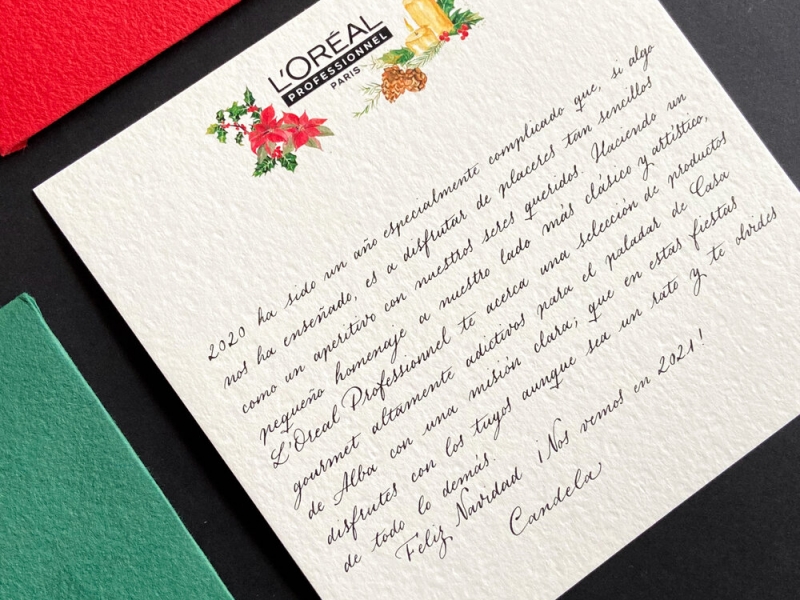 L'ORÉAL
PROFESSIONNEL
PARIS
2020 ha sido un año especialmente complicado que, si algo
nos ha enseñado, es a disfrutar de placeres tan sencillos
como un aperitivo con nuestros seres queridos. Haciendo un
pequeño homenaje a nuestro lado más clásico y artístico,
L'Oreal Professionnel te acerca una selección de productos
gourmet altamente adictivos para el paladar de Casa
de Alba con una misión clara; que en estas fiestas
disfrutes con los tuyos aunque sea un rato y te olvides
de todo lo demás.
Feliz Navidad ¡Nos vemos en 2021!
Candela